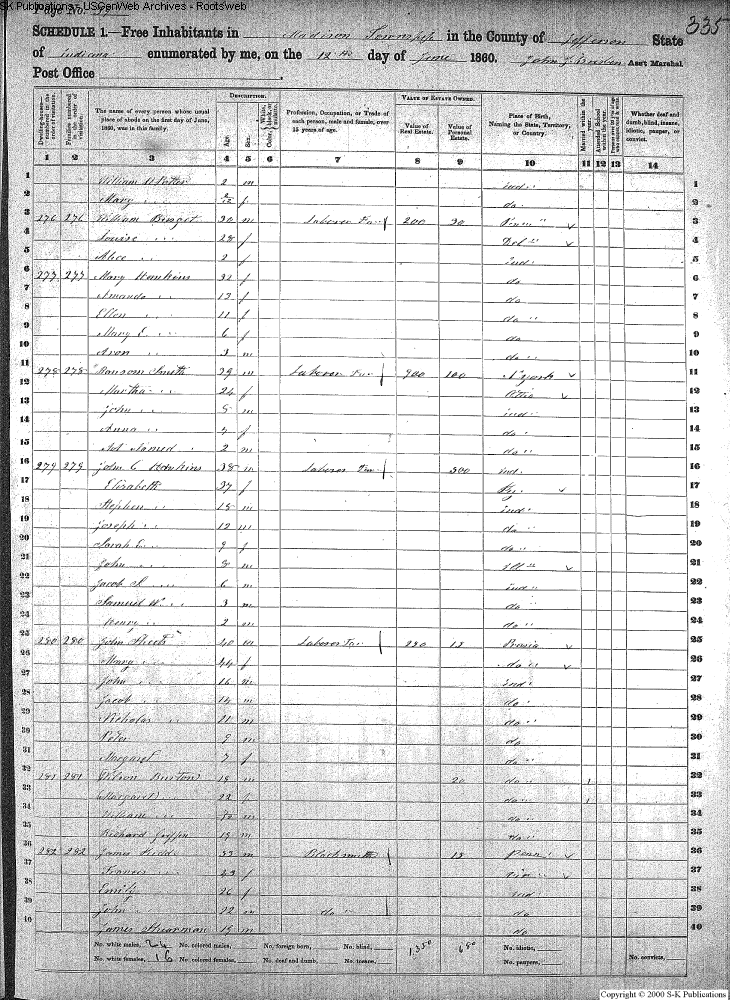 SK Publications - USGenWeb Archives - Rootsweb
Page No. 335
SCHEDULE 1.—Free Inhabitants in Madison Township in the County of Jefferson State
of Indiana enumerated by me, on the 12th day of June 1860. John Ass't Marshal
Post Office
DESCRIPTION. VALUE OF ESTATE OWNED.
Dwelling-houses— numbered in the order of visitation. Families numbered in the order of visitation. The name of every person whose usual place of abode on the first day of June, 1860, was in this family. Age. Sex. Color, White, black, or mulatto. Profession, Occupation, or Trade of each person, male and female, over 15 years of age. Value of Real Estate. Value of Personal Estate. Place of Birth, Naming the State, Territory, or Country. Married within the year. Attended School within the year. Whether deaf and dumb, blind, insane, idiotic, pauper, or convict.
1 2 3 4 5 6 7 8 9 10 11 12 13 14
1 William 2 m Ind. 1
2 Mary f do 2
3 276 276 William 30 m Laborer Far 200 30 Penn 3
4 Louise 28 f Del 4
5 Alice 2 f Ind. 5
6 277 277 Mary Hankins 32 f do 6
7 Amanda 13 f do 7
8 Ellen 11 f do 8
9 Mary E 6 f do 9
10 Aron 3 m do 10
11 278 278 Ransom Smith 29 m Laborer Far 900 100 N York 11
12 Martha 24 f Ohio 12
13 John 5 m Ind. 13
14 Anna 4 f do 14
15 Not Named 2 m do 15
16 279 279 John C Hankins 38 m Laborer Far 300 Ind. 16
17 Elizabeth 37 f Ky. 17
18 Stephen 15 m Ind. 18
19 Joseph 12 m do 19
20 Sarah E 9 f do 20
21 John 8 m Ill 21
22 Jacob 6 m Ind 22
23 Samuel W. 3 m do 23
24 Henry 2 m do 24
25 280 280 John 40 m Laborer Far 250 15 Prusia 25
26 Mary 44 f do 26
27 John 16 m Ind. 27
28 Jacob 14 m do 28
29 Nicholas 11 m do 29
30 Peter 9 m do 30
31 Margaret 7 f do 31
32 281 281 Wilson Burton 18 m 20 do 1 32
33 Margaret 22 f do 1 33
34 William m do 34
35 Richard Griffin 15 m do 35
36 282 282 James 53 m Blacksmith 15 Penn 36
37 Francis f 37
38 26 f Ind 38
39 John 22 m do do 39
40 James Shearman 15 m do 40
No. white males, 24 No. colored males, No. foreign born, No. blind, 1,350 680 No. idiotic,
No. white females, 16 No. colored females, No. deaf and dumb, No. insane, No. paupers, No. convicts,
Copyright © 2000 S-K Publications